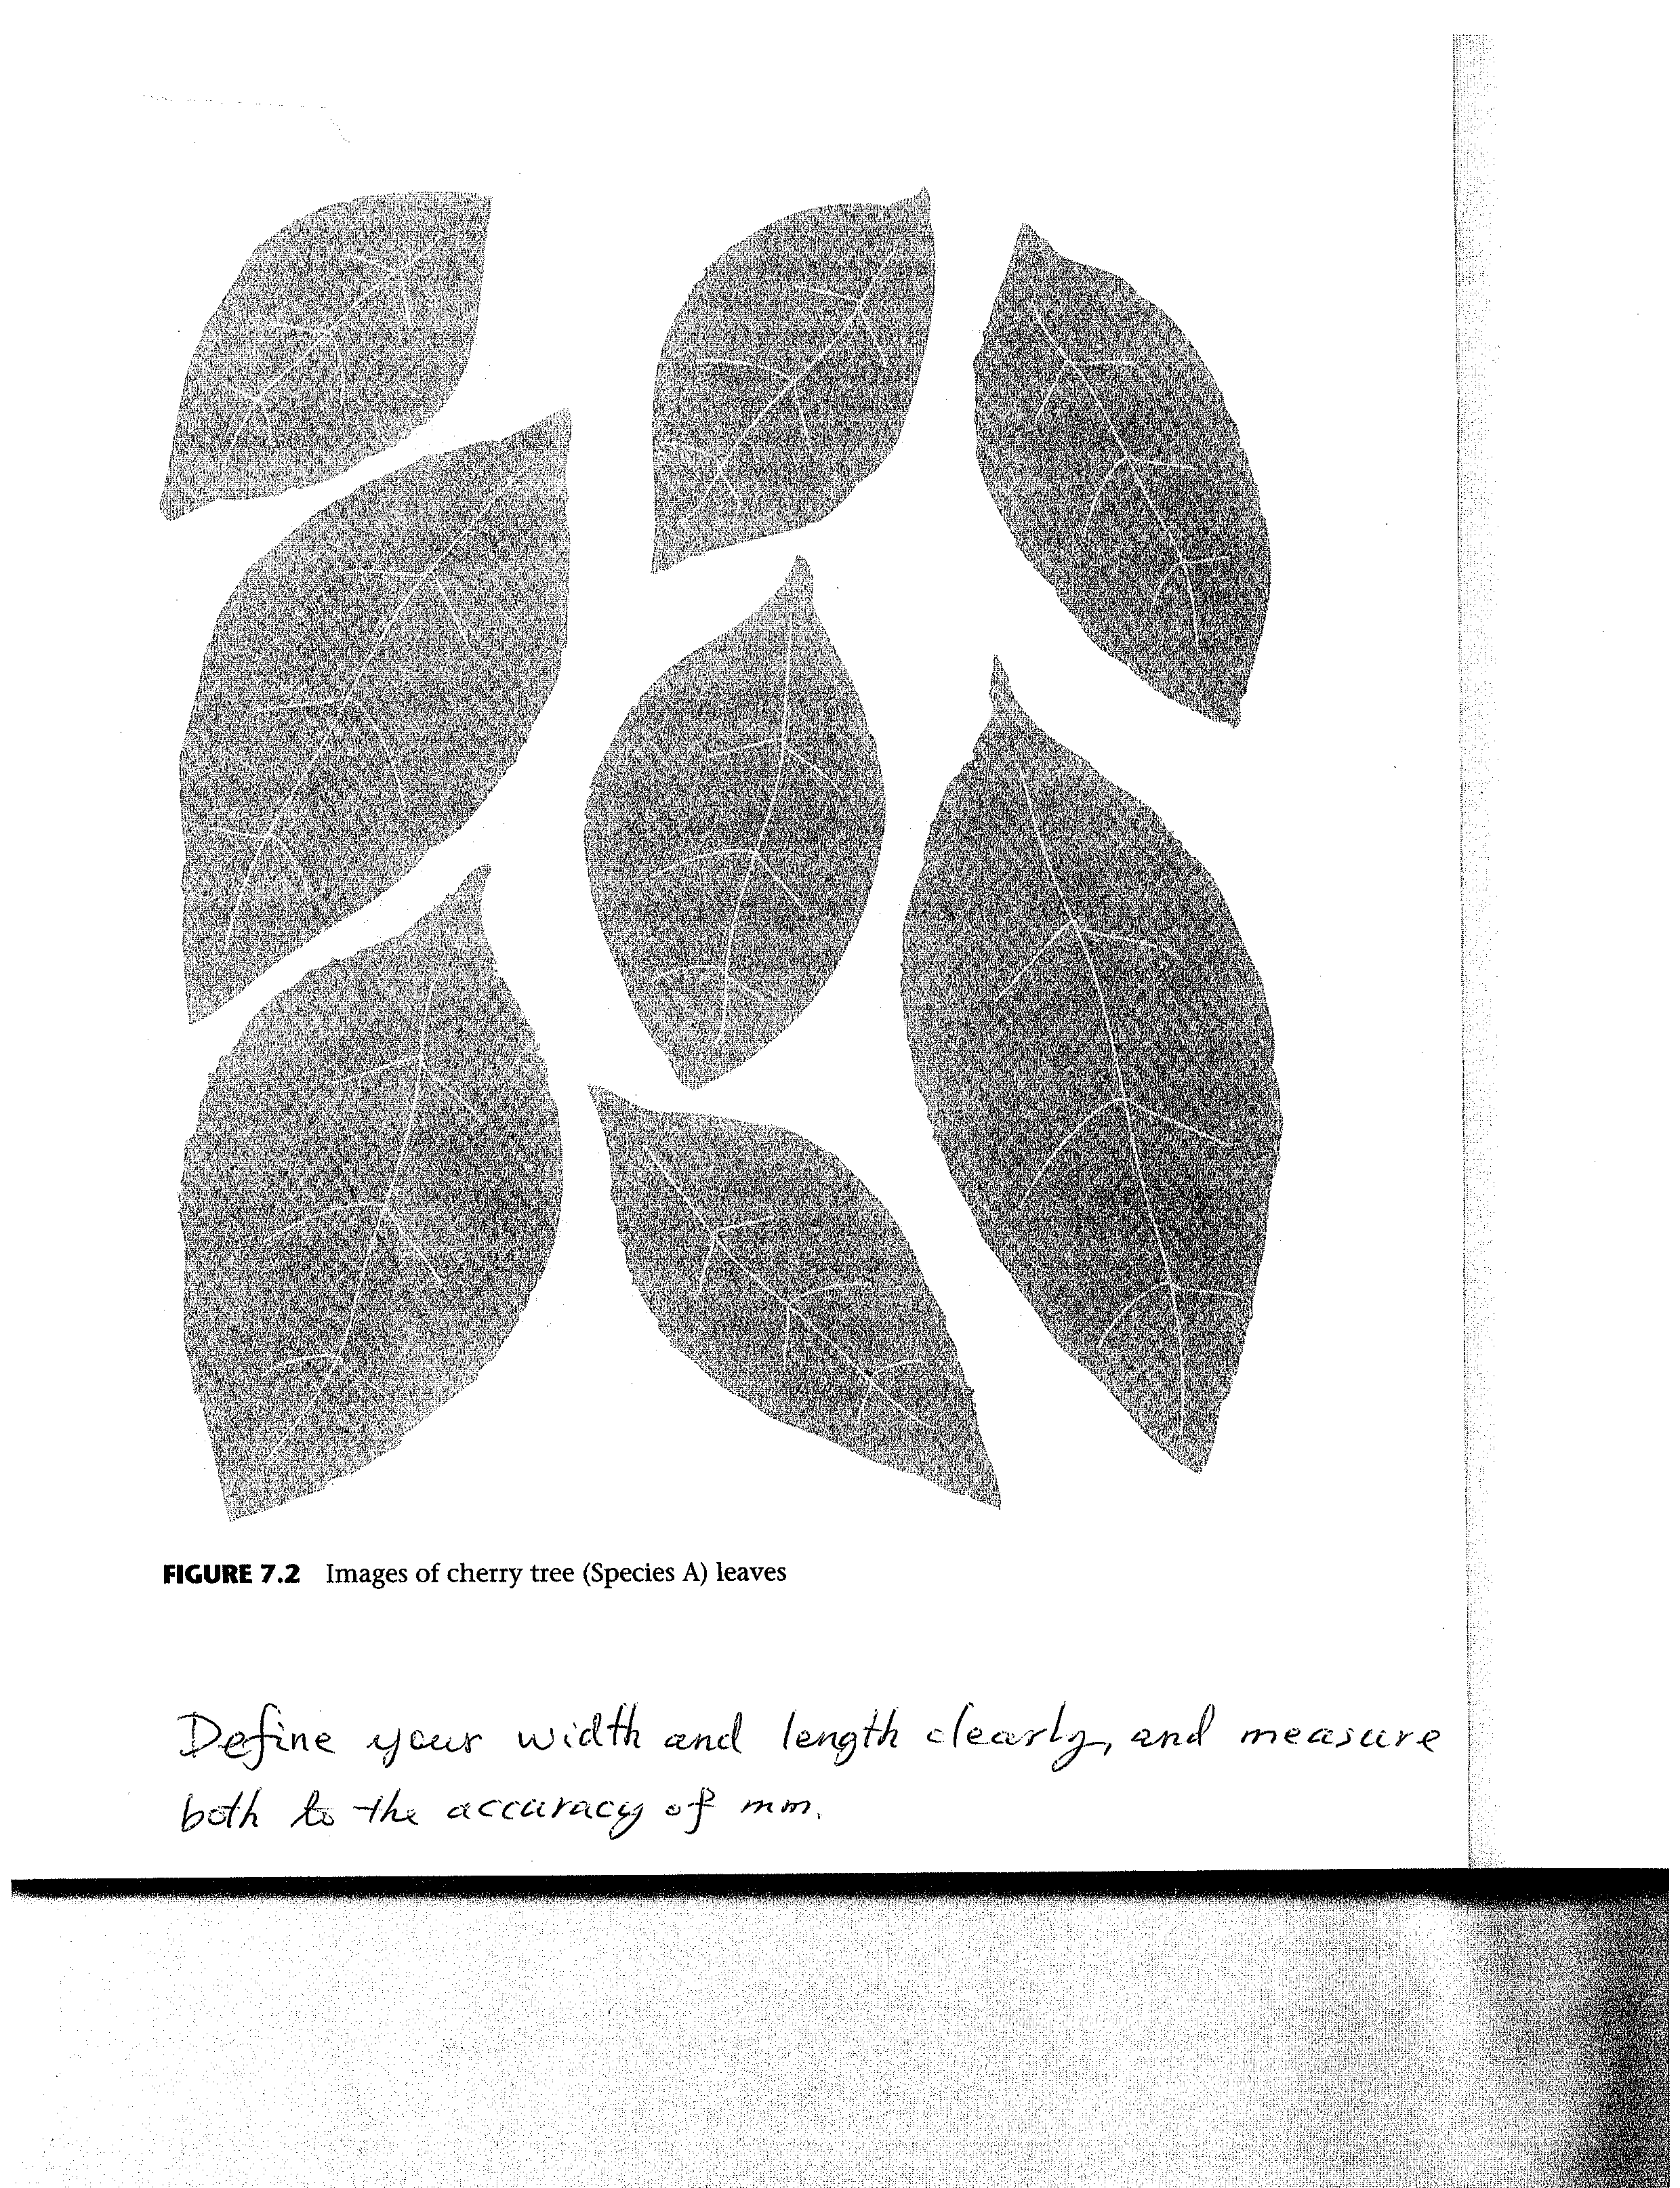 FIGURE 7.2 Images of cherry tree (Species A) leaves
Define your width and length clearly, and measure
both to the accuracy of mm.